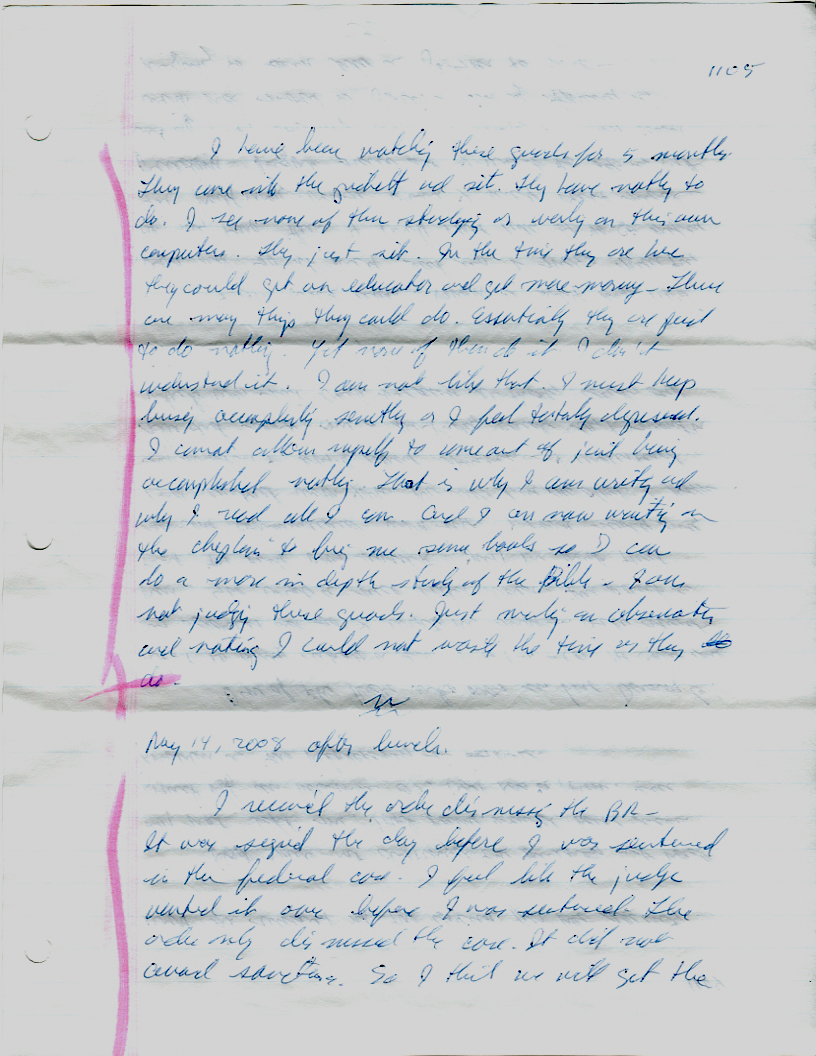 1105
I have been watching these guards for 5 months
They come with the and sit. They have nothing to
do. I see none of them studying or working on their own
computers. They just sit. In the time they are here
they could get an education and get more money - There
are many things they could do. Essentially they are paid
to do nothing. Yet none of them do it. I don't
understand it. I am not like that. I must keep
busy accomplishing something or I feel totally depressed.
I cannot allow myself to come out of just being
accomplished nothing. That is why I am writing and
why I read all I can. And I am now waiting on
the chaplain to bring me some books so I can
do a more in depth study of the Bible - I am
not judging these guards. Just making an observation
and noting I could not waste the time as they
do.
May 14, 2008 after lunch.
I received the order dismissing the BR -
It was signed the day before I was sentenced
in the federal case. I feel like the judge
wanted it over before I was sentenced. The
order only dismissed the case. It did not
award sanctions. So I think we will get the